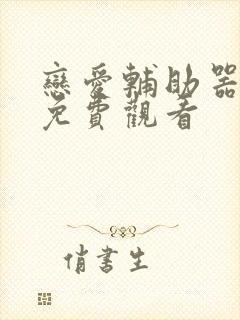 戀愛輔助器
免費觀看
俏書生